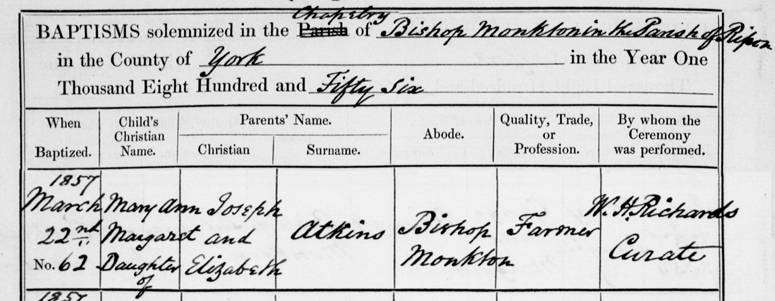 Chapelry
BAPTISMS solemnized in the Parish of Bishop Monkton in the Parish of Ripon
in the County of York in the Year One
Thousand Eight Hundred and Fifty Six
When Baptized.
Child's Christian Name.
Parents' Name.
Christian
Surname.
Abode.
Quality, Trade, or Profession.
By whom the Ceremony was performed.
1857
March
22nd
No. 62
Mary Ann
Margaret
Daughter
of
Joseph
and
Elizabeth
Atkins
Bishop
Monkton
Farmer
W. H. Richards
Curate
1857